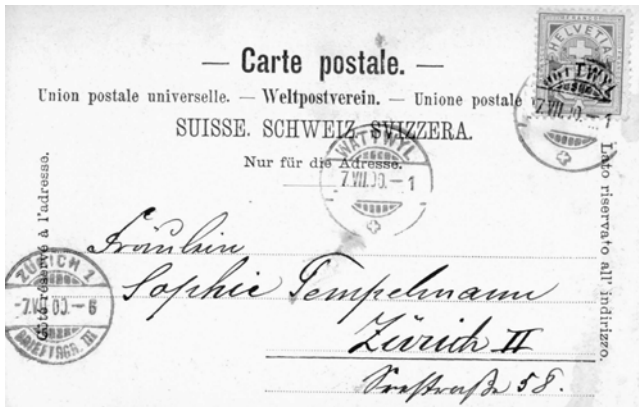 — Carte postale. —
Union postale universelle. — Weltpostverein. — Unione postale
SUISSE. SCHWEIZ. SVIZZERA.
Nur für die Adresse.
Côté réservé à l'adresse.
Lato riservato all' indirizzo.
HELVETIA
WATTWYL
7.VII.00.–1
WATTWYL
7.VII.00.–1
ZÜRICH 1
-7.VII.00.–6
BRIEFTRGR. III
Fräulein
Sophie Tempelmann
Zürich II
Seestraße 58.